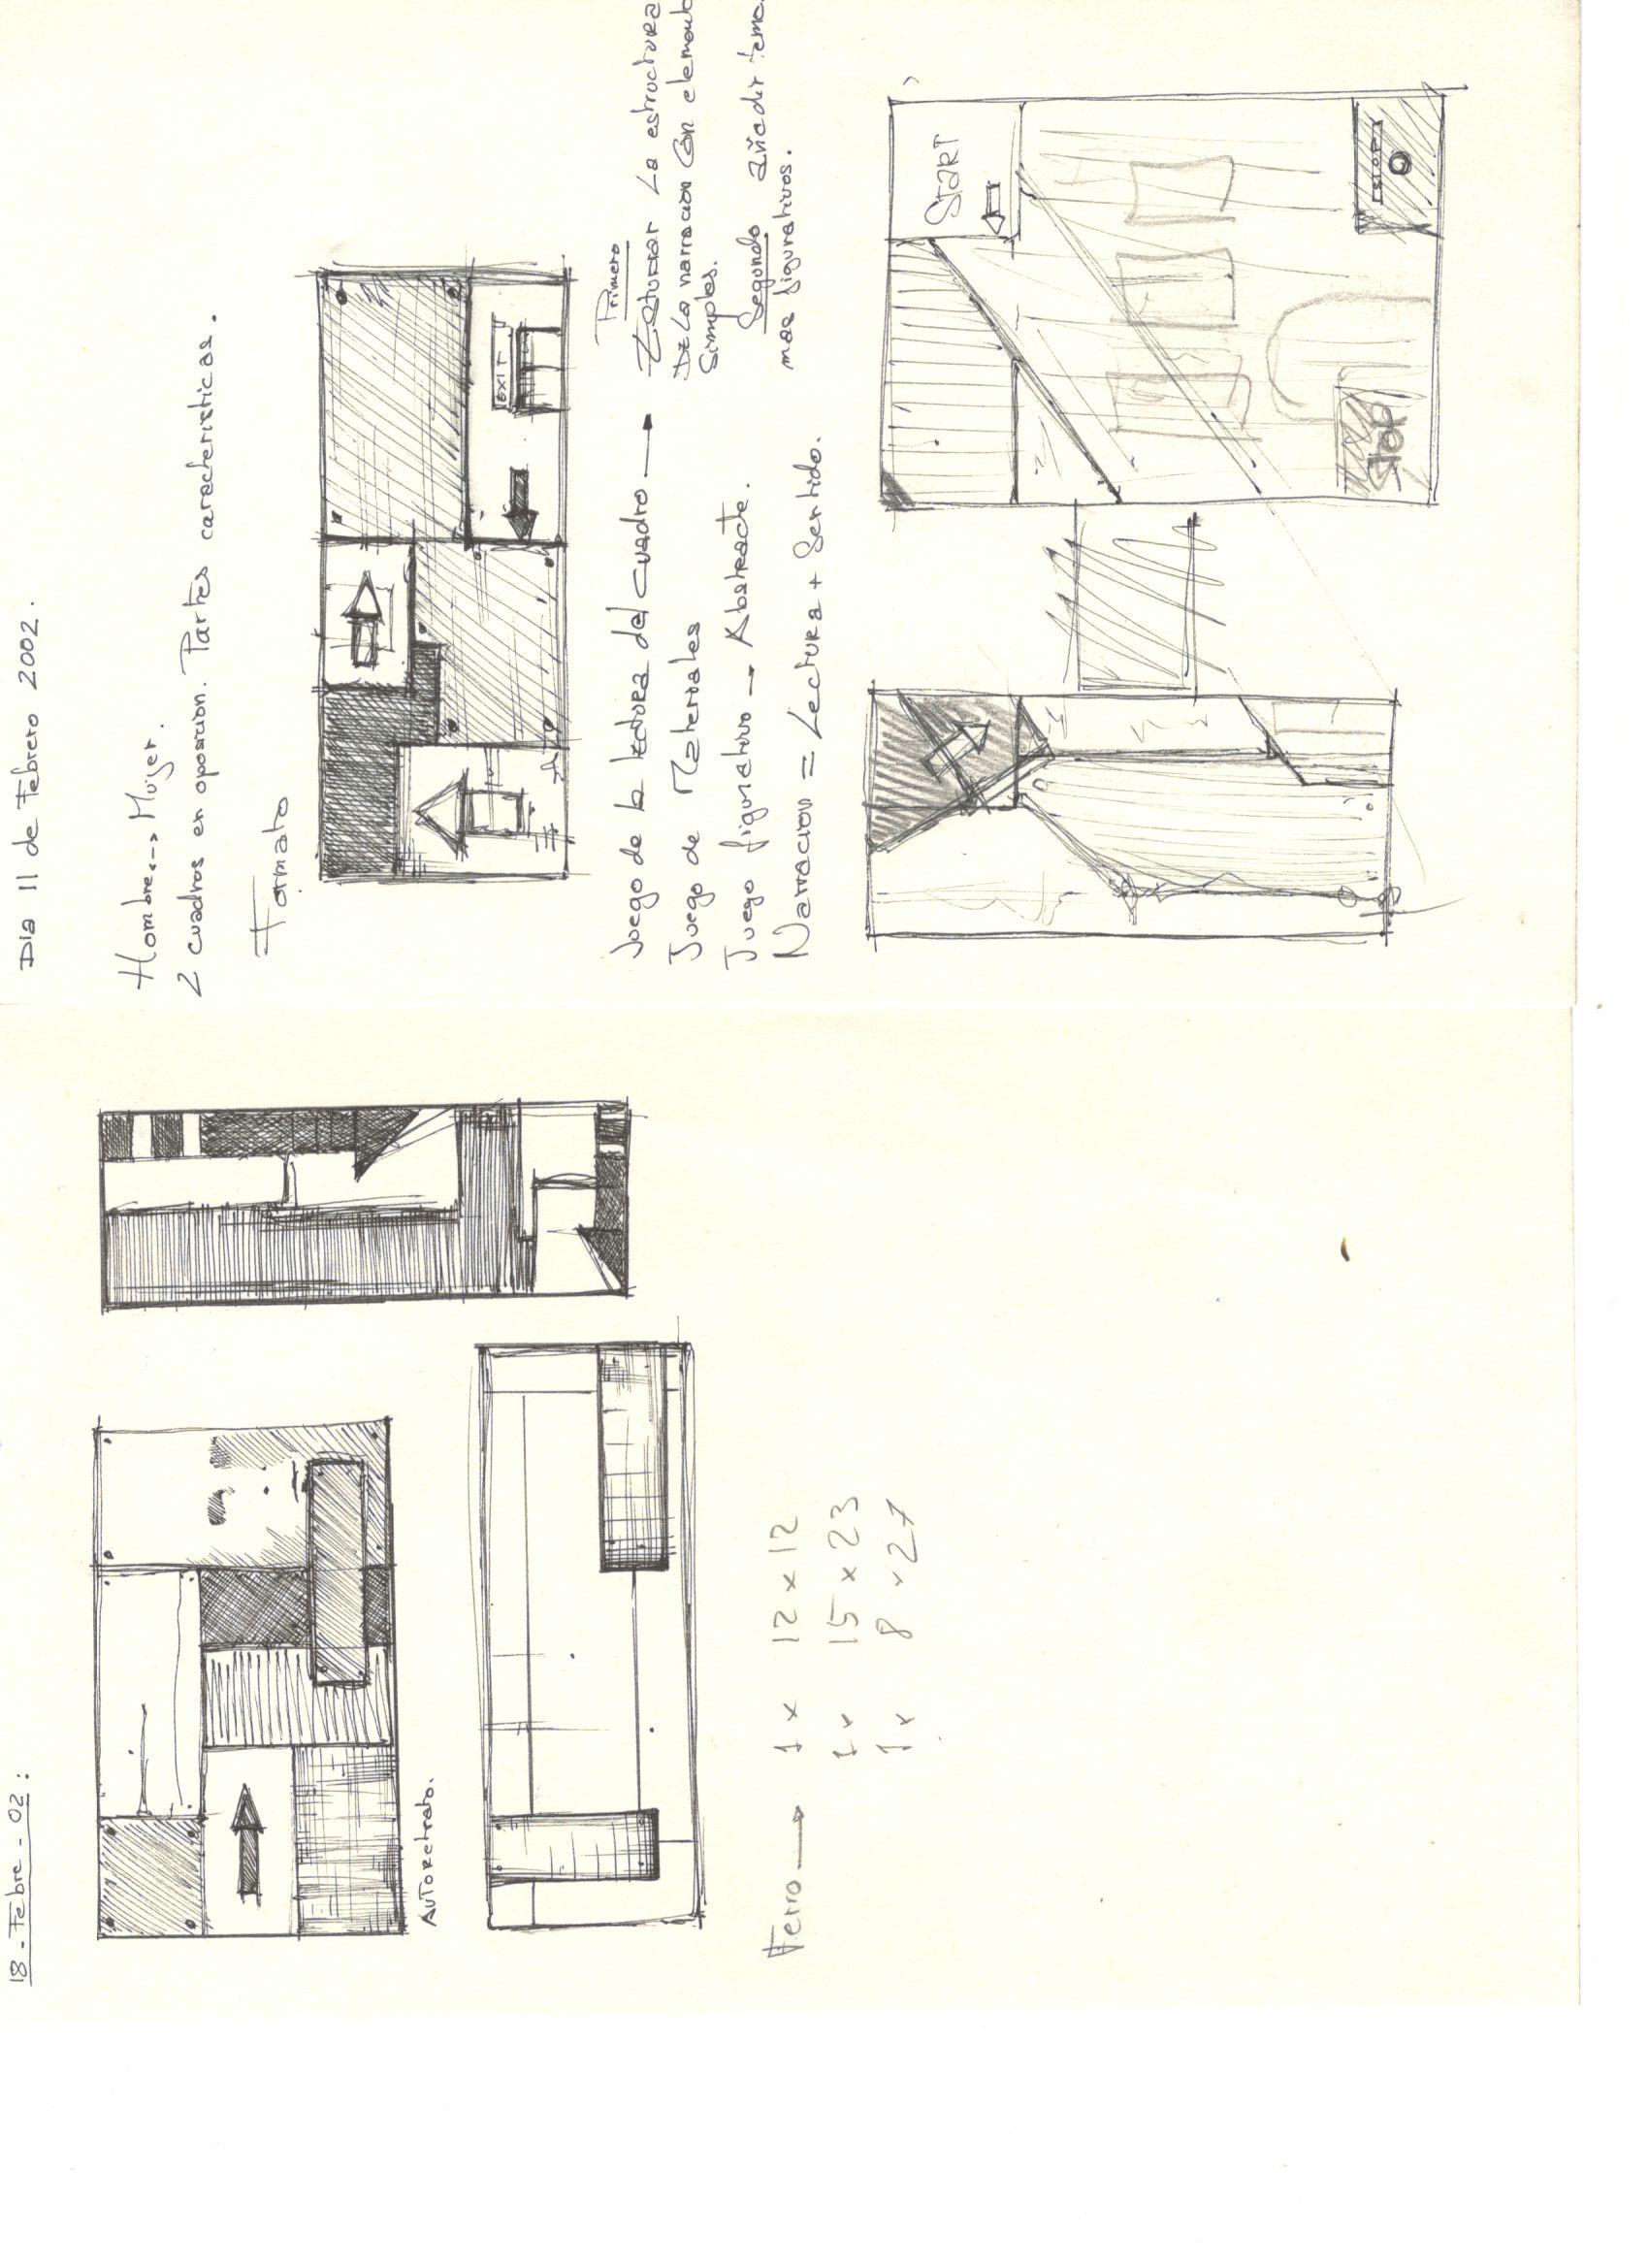 18 - Febre - 02 :
AuToretrato.
Ferro → 1 x 12 x 12
1 x 15 x 23
1 x 8 x 27
Dia 11 de Febrero 2002.
Hombre <--> Mujer.
2 cuadros en oposicion. Partes caracteristicas.
Formato
EXIT
Juego de la lectura del cuadro →
Juego de Materiales
Juego figurativo → Abstracte.
Narracion = Lectura + Sentido.
Primero
La estructura
De La narracion Con element
Simples.
Segundo añadir tema
mas figurativos.
START
STOP
STOP